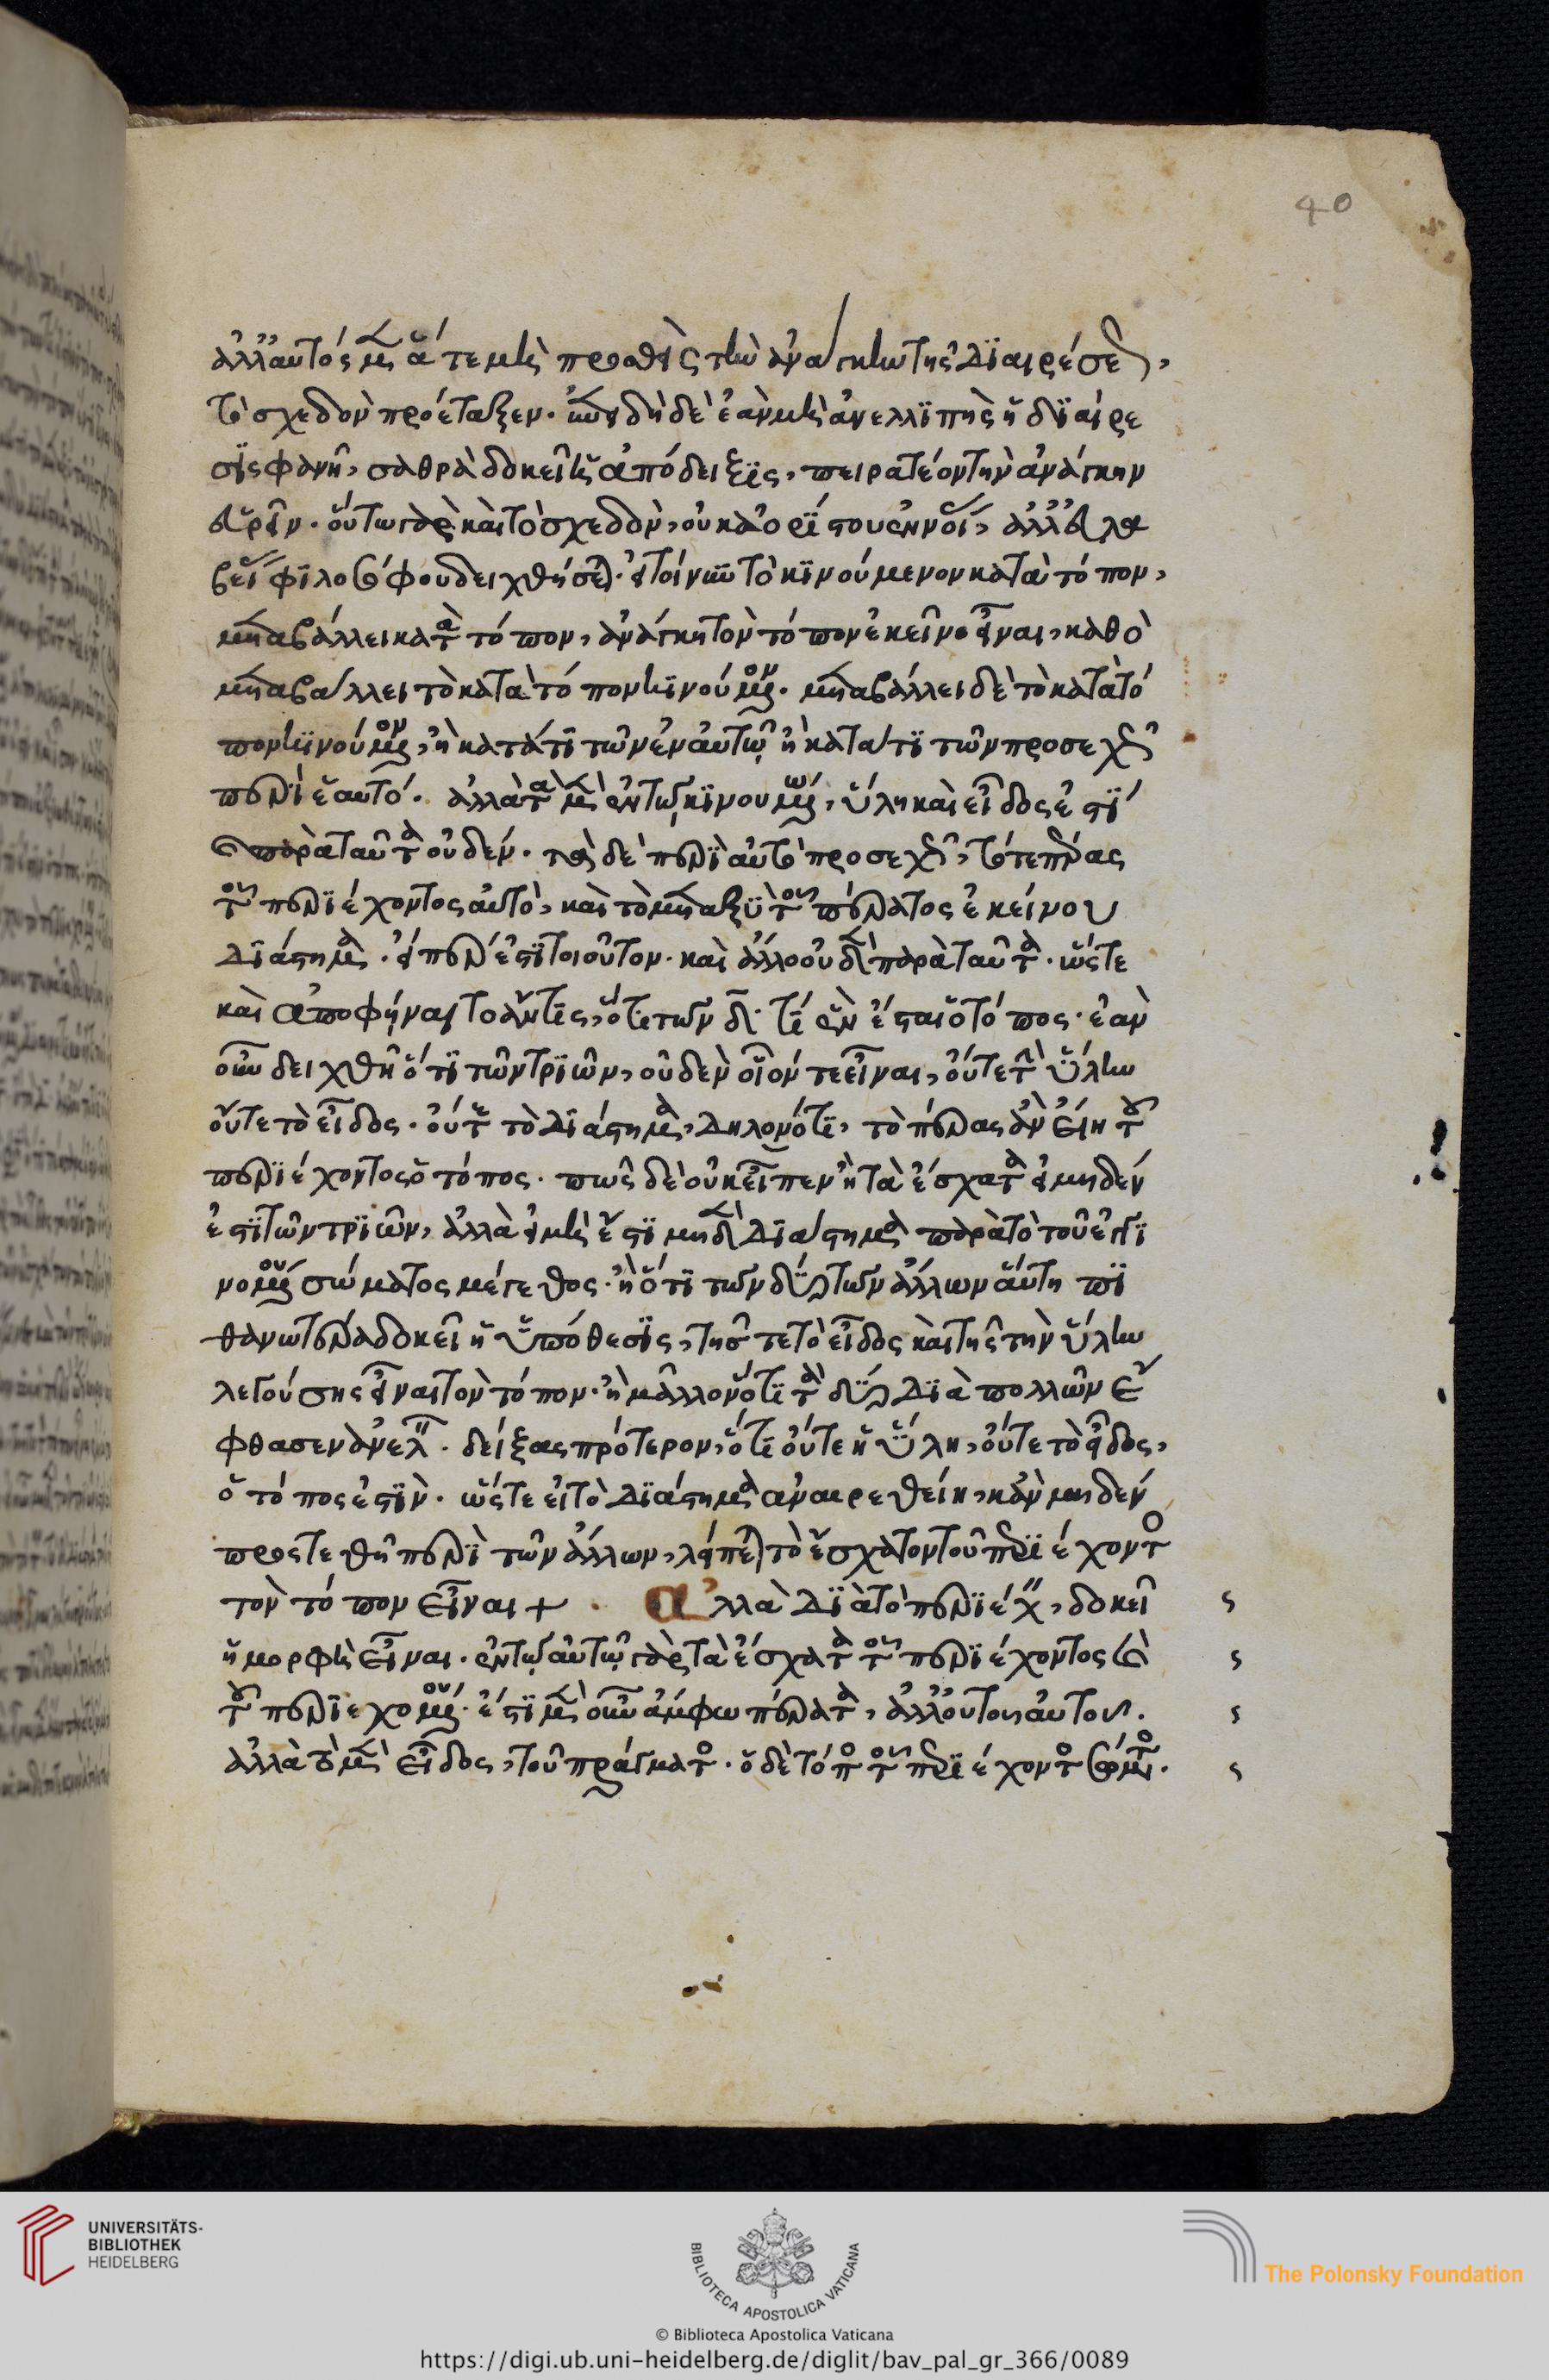 40
ἀλλ' αὐτὸς μὲν ἅτε μὴ προσθεὶς τὴν ἀνάγκην τῆς διαιρέσεως,
τὸ σχεδὸν προέταξεν. ἡμῖν δὴ δὲ ἐὰν μὴ ἀνελλιπὴς ἡ διαίρε
σις φανῇ, σαθρὰ δοκεῖ ἡ ἀπόδειξις, πειρατέον τὴν ἀνάγκην
εὑρεῖν. οὕτω γὰρ καὶ τὸ σχεδὸν, οὐκ ἀορίστου ἐννοίας, ἀλλ' εὐλα
βείας φιλοσόφου δειχθήσεται. εἰ τοίνυν τὸ κινούμενον κατὰ τόπον,
μεταβάλλει κατὰ τόπον, ἀνάγκη τὸν τόπον ἐκεῖνο εἶναι, καθὸ
μεταβάλλει τὸ κατὰ τόπον κινούμενον. μεταβάλλει δὲ τὸ κατὰ τό
πον κινούμενον, ἢ κατά τι τῶν ἐν αὐτῷ ἢ κατά τι τῶν προσεχῶν
περὶ ἑαυτό. ἀλλὰ τὰ μὲν ἐν τῷ κινουμένῳ, ὕλη καὶ εἶδός ἐστι
καὶ παρὰ ταῦτα οὐδέν. τὰ δὲ περὶ αὐτὸ προσεχῶς, τό τε πέρας
τοῦ περιέχοντος αὐτὸ, καὶ τὸ μεταξὺ τοῦ πέρατος ἐκείνου
διάστημα. εἴπερ ἐστὶ τοιοῦτον. καὶ ἄλλο οὐδὲν παρὰ ταῦτα. ὥστε
καὶ ἀποφήναιτο ἄν τις, ὅτι τῶν δ΄ τι ἓν ἔσται ὁ τόπος. ἐὰν
οὖν δειχθῇ ὅτι τῶν τριῶν, οὐδὲν οἷόν τε εἶναι, οὔτε τὴν ὕλην
οὔτε τὸ εἶδος. οὔτε τὸ διάστημα, δηλονότι, τὸ πέρας ἂν εἴη τοῦ
περιέχοντος ὁ τόπος. πῶς δὲ οὐκ εἶπεν ἢ τὰ ἔσχατα εἰ μηδέν
ἐστι τῶν τριῶν, ἀλλὰ εἰ μὴ ἔστι μηδὲν διάστημα παρὰ τὸ τοῦ ἐγγι
νομένου σώματος μέγεθος. ἢ ὅτι τῶν δύο τῶν ἄλλων αὕτη πι
θανωτέρα δοκεῖ ἡ ὑπόθεσις, τῆς τε τὸ εἶδος καὶ τῆς τὴν ὕλην
λεγούσης εἶναι τὸν τόπον. ἢ μᾶλλον ὅτι τὰ δύο διὰ πολλῶν ἔ
φθασεν ἀνελών. δείξας πρότερον, ὅτι οὔτε ἡ ὕλη, οὔτε τὸ εἶδος,
ὁ τόπος ἐστὶν. ὥστε εἰ τὸ διάστημα ἀναιρεθείη, κἂν μηδέν
προστεθῇ περὶ τῶν ἄλλων, λείπεται τὸ ἔσχατον τοῦ περιέχοντος
τὸν τόπον εἶναι + . Ἀλλὰ διὰ τὸ περιέχειν, δοκεῖ
ἡ μορφὴ εἶναι. ἐν τῷ αὐτῷ γὰρ τὰ ἔσχατα τοῦ περιέχοντος καὶ
τοῦ περιεχομένου. ἔστι μὲν οὖν ἄμφω πέρατα, ἀλλ' οὐ τοῦ αὐτοῦ.
ἀλλὰ τὸ μὲν εἶδος, τοῦ πράγματος. ὁ δὲ τόπος τοῦ περιέχοντος σώματος.
UNIVERSITÄTS-
BIBLIOTHEK
HEIDELBERG
BIBLIOTECA APOSTOLICA VATICANA
The Polonsky Foundation
© Biblioteca Apostolica Vaticana
https://digi.ub.uni-heidelberg.de/diglit/bav_pal_gr_366/0089